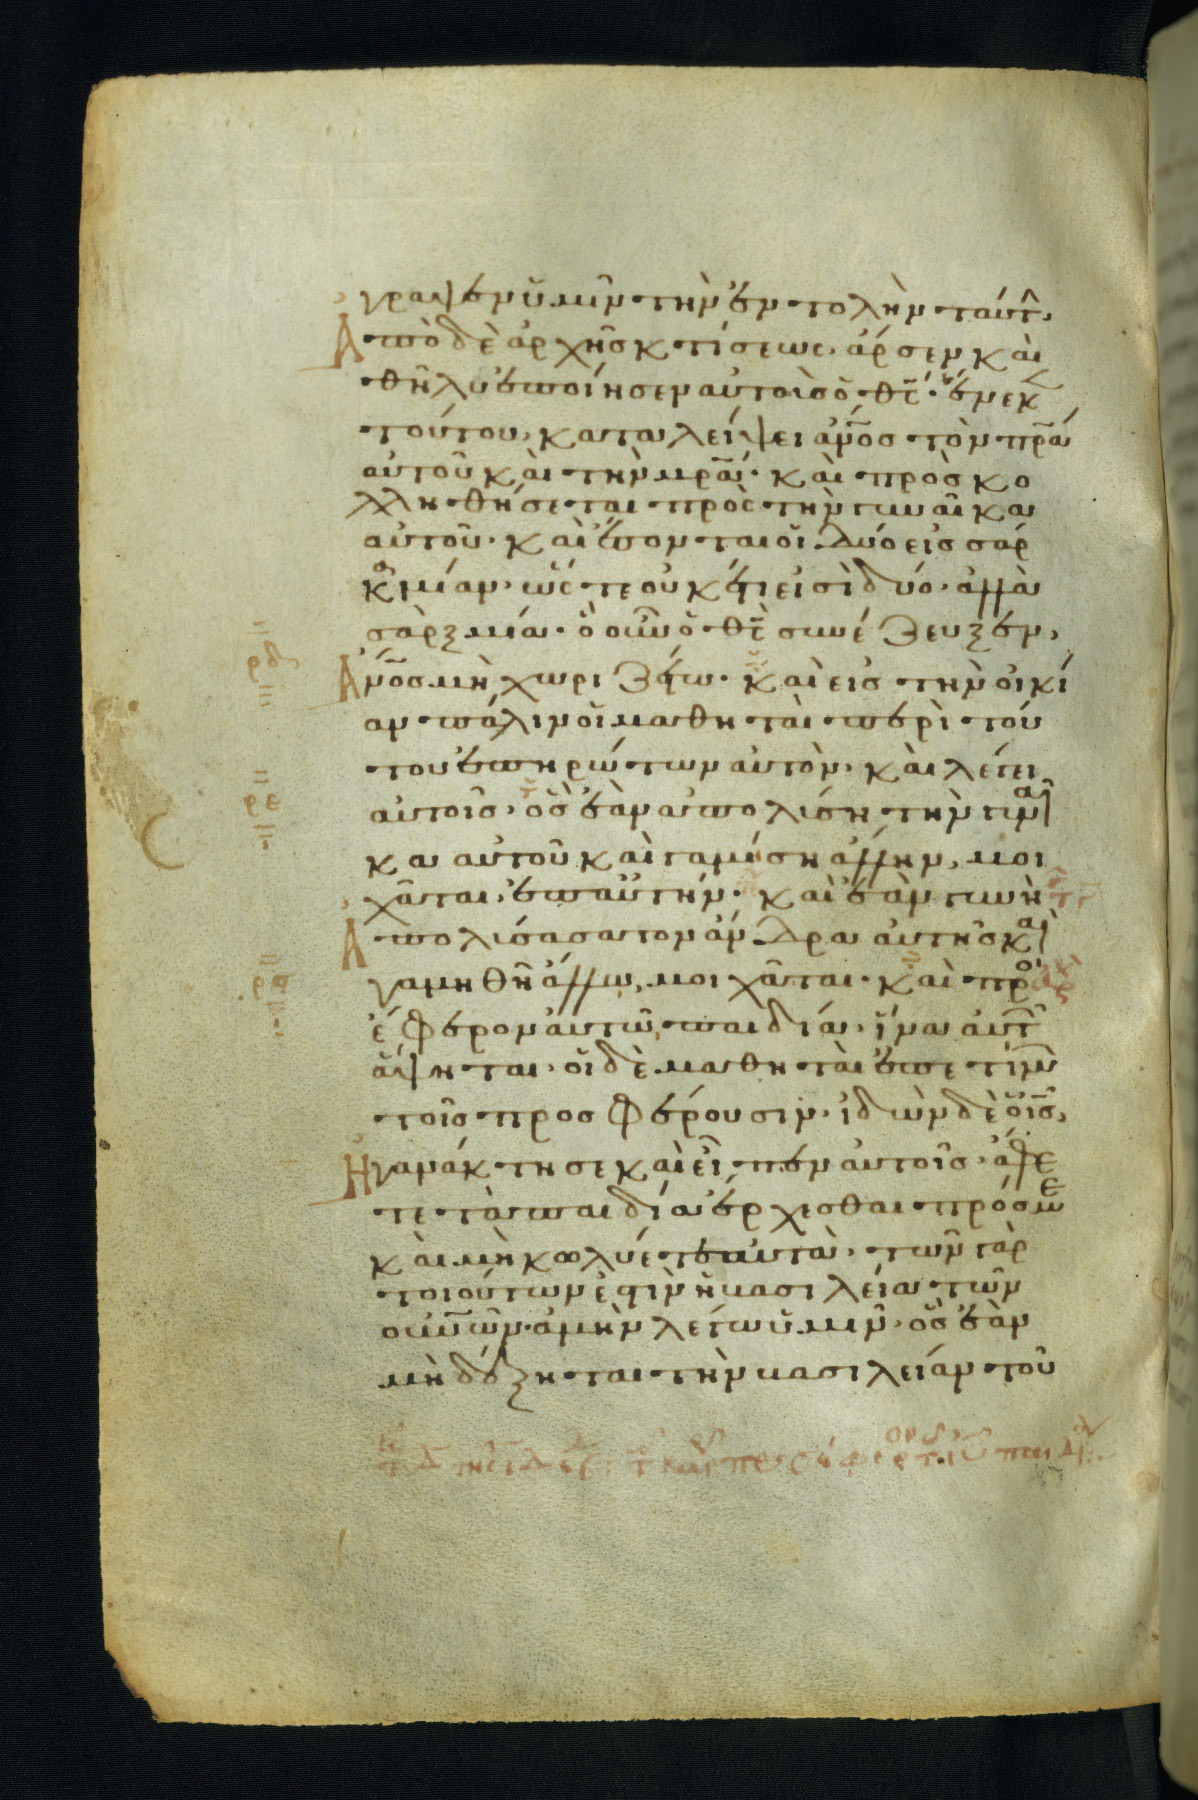 γραψεν ὑμῖν τὴν ἐντολὴν ταύτ
Ἀπὸ δὲ ἀρχῆς κτίσεως ἄρσεν καὶ
θῆλυ ἐποίησεν αὐτοὺς ὁ θς· ἕνεκ
τούτου, καταλείψει ἄνος τὸν πρα
αὐτοῦ καὶ τὴν μρα· καὶ προσκο
λληθήσεται πρὸς τὴν γυναῖκα
αὐτοῦ· καὶ ἔσονται οἱ δύο εἰς σάρ
κα μίαν· ὥστε οὐκέτι εἰσὶ δύο· ἀλλὰ
σὰρξ μία· ὃ οὖν ὁ θς συνέζευξεν,
ρδ Ἄνος μὴ χωριζέτω· καὶ εἰς τὴν οἰκί
αν πάλιν οἱ μαθηταὶ περὶ τού
του ἐπηρώτων αὐτόν· καὶ λέγει
ρε αὐτοῖς· ὃς ἐὰν ἀπολύσῃ τὴν γυναῖ
κα αὐτοῦ καὶ γαμήσῃ ἄλλην, μοι
χᾶται ἐπ αὐτήν· καὶ ἐὰν γυνὴ
Ἀπολύσασα τὸν ἄνδρα αὐτῆς καὶ
ρϛ γαμηθῇ ἄλλω, μοιχᾶται· καὶ προ
έφερον αὐτῶ παιδία· ἵνα αὐτ
ἅψηται· οἱ δὲ μαθηταὶ ἐπετίμ
τοῖς προσφέρουσιν· ἰδὼν δὲ ὁ ις,
Ἠγανάκτησε καὶ εἶπεν αὐτοῖς· ἄφε
τε τὰ παιδία ἔρχεσθαι πρός με
καὶ μὴ κωλύετε αὐτά· τῶν γὰρ
τοιούτων ἐστὶν ἡ βασιλεία τῶν
οὐνῶν· ἀμὴν λέγω ὑμῖν· ὃς ἐὰν
μὴ δέξηται τὴν βασιλείαν τοῦ